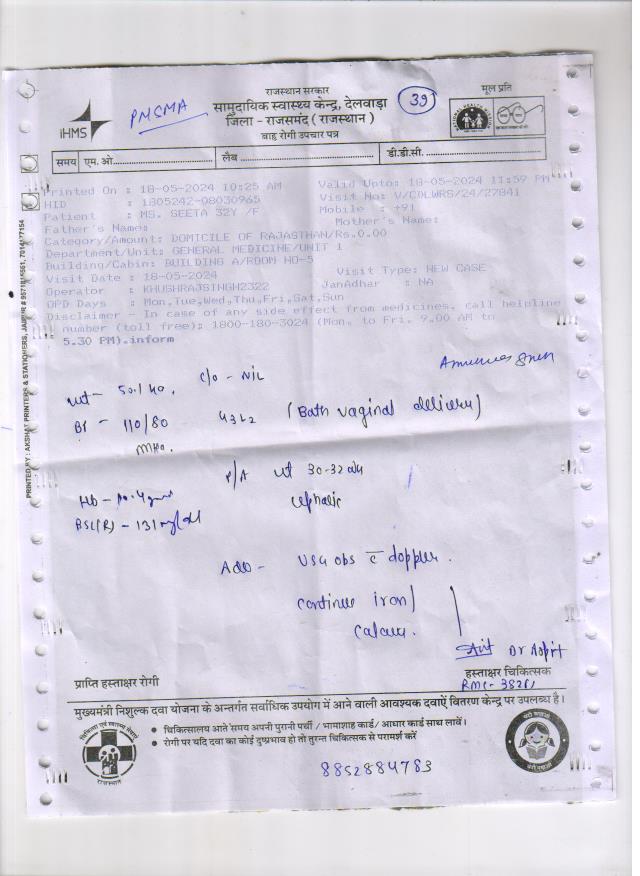 राजस्थान सरकार
सामुदायिक स्वास्थ्य केन्द्र, देलवाड़ा
जिला - राजसमंद ( राजस्थान )
बाह्य रोगी उपचार पत्र
मूल प्रति
39
iHMS
PMSMA
समय एम. ओ. लैब डी.डी.सी.
Printed On : 18-05-2024 10:25 AM Valid Upto: 18-05-2024 11:59 PM
HID : 1805242-08030965 Visit No: V/COLWRS/24/27841
Patient : MS. SEETA 32Y /F Mobile : +91
Father's Name: Mother's Name:
Category/Amount: DOMICILE OF RAJASTHAN/Rs.0.00
Department/Unit: GENERAL MEDICINE/UNIT 1
Building/Cabin: BUILDING A/ROOM NO-5
Visit Date : 18-05-2024 Visit Type: NEW CASE
Operator : KHUSHRAJSINGH2322 JanAadhar : NA
OPD Days : Mon,Tue,Wed,Thu,Fri,Sat,Sun
Disclaimer - In case of any side effect from medicines, call helpline
number (toll free): 1800-180-3024 (Mon. to Fri. 9.00 AM to
5.30 PM).inform
c/o - NIL
wt - 50.1 kg.
BP - 110/80
G3L2 (Both vaginal delivery)
P/A ut 30-32 wk
cephalic
Hb - 10.4 gm
BSL(R) - 131 mg/dl
Adv - USG obs c̄ doppler.
continue iron/
Dr Arpit
प्राप्ति हस्ताक्षर रोगी
हस्ताक्षर चिकित्सक
मुख्यमंत्री निशुल्क दवा योजना के अन्तर्गत सर्वाधिक उपयोग में आने वाली आवश्यक दवाऐं वितरण केन्द्र पर उपलब्ध है।
• चिकित्सालय आते समय अपनी पुरानी पर्ची / भामाशाह कार्ड / आधार कार्ड साथ लावें।
• रोगी पर यदि दवा का कोई दुष्प्रभाव हो तो तुरन्त चिकित्सक से परामर्श करें
राजस्थान
8852884783